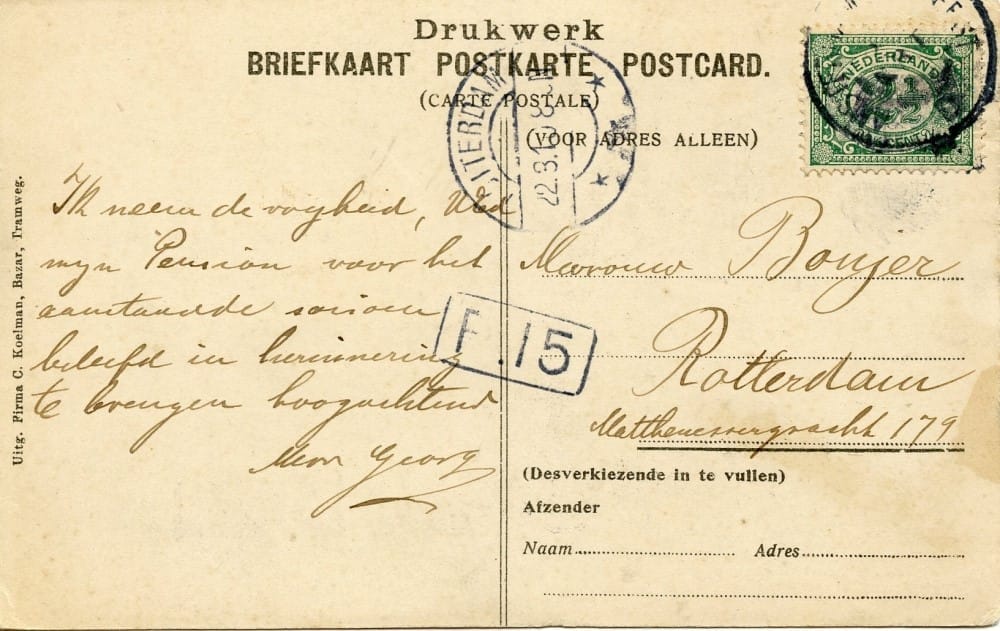 Drukwerk
BRIEFKAART POSTKARTE POSTCARD.
(CARTE POSTALE)
(VOOR ADRES ALLEEN)
NEDERLAND
2½
22.8.10 8
Uitg. Firma C. Koelman, Bazar, Tramweg.
Ik neem de vryheid, Ued
myn Pension voor het
aanstaande saison
beleefd in herinnering
te brengen hoogachtend
Mevr Georg
Mevrouw Bouyer
F. 15
Rotterdam
179
(Desverkiezende in te vullen)
Afzender
Naam Adres